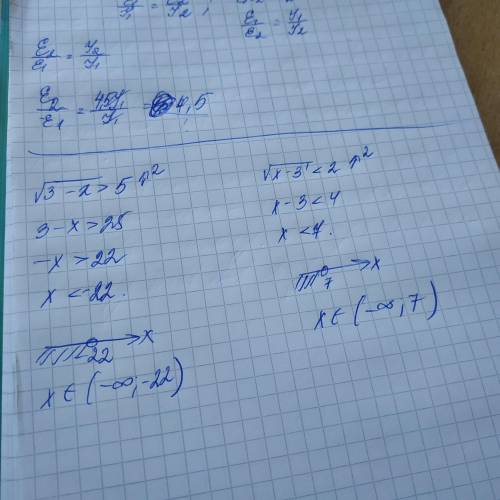 E₁/E₂ = y₁/y₂
E₂/E₁ = y₂/y₁
E₂/E₁ = 4,5y₁/y₁ = 4,5
√3 - x > 5 |^2
3 - x > 25
-x > 22
x < -22.
-22 x
x ∈ (-∞; -22)
√x - 3 < 2 |^2
x - 3 < 4
x < 7.
7 x
x ∈ (-∞, 7)